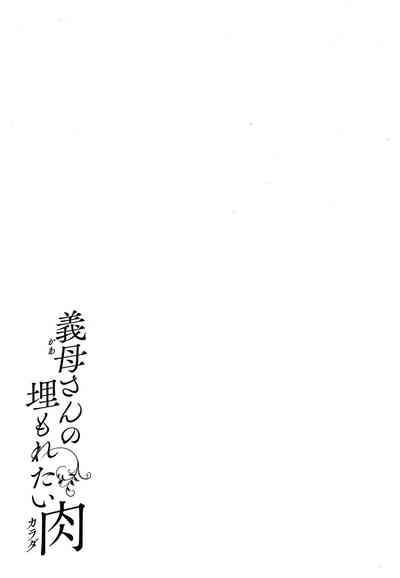 義母さんの
かあ
埋もれたい肉
カラダ